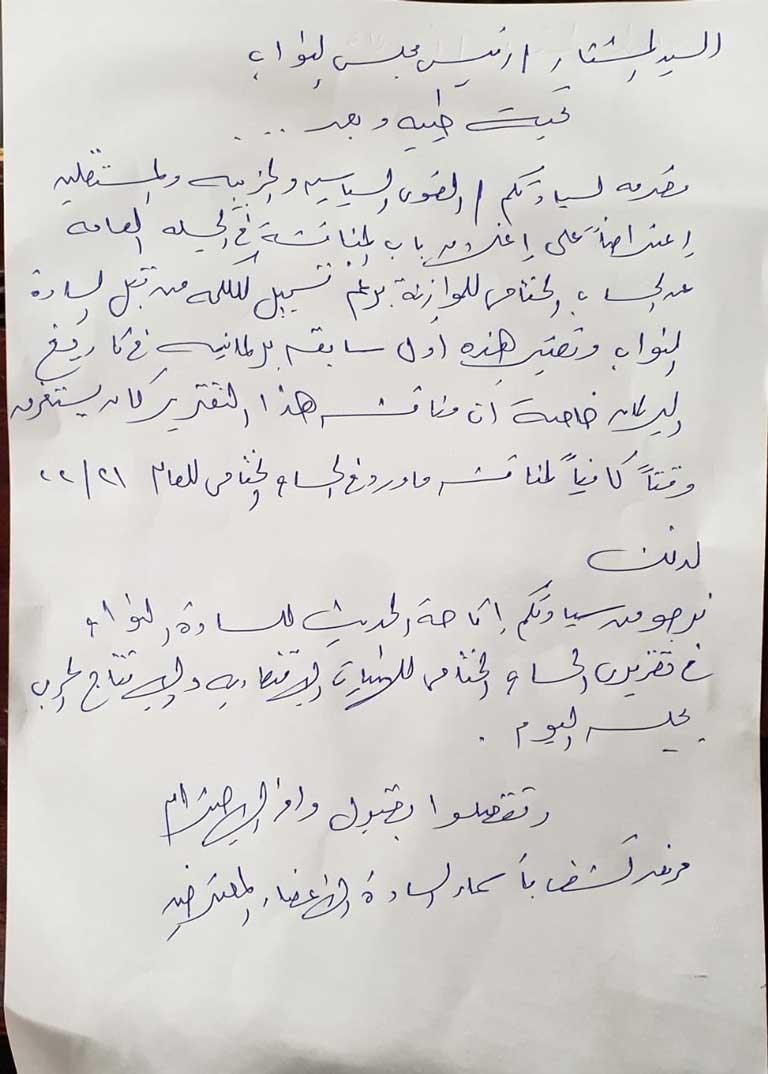 السيد المستشار / رئيس مجلس النواب
تحية طيبه وبعد ...
مقدمه لسيادتكم / القوى السياسيه والحزبيه والمستقلين
إعتراضاً على إغلاق باب المناقشة في الجلسه العامه
عن الحساب الختامى للموازنة برغم تسجيل الكلمه من قبل السادة
النواب وتعتبر هذه أول سابقه برلمانيه في تاريخ
البرلمان خاصة أن مناقشه هذا التقرير كان يستغرق
وقتاً كافياً لمناقشه ماورد في الحساب الختامى للعام ٢١/٢٢
لذلك
نرجو من سيادتكم إتاحة الحديث للسادة النواب
في تقريرى الحساب الختامى للهيئات الاقتصاديه والانتاج الحربى
بجلسه اليوم .
وتفضلوا بقبول وافر الاحترام
مرفق كشف بأسماء السادة الأعضاء المعترضين